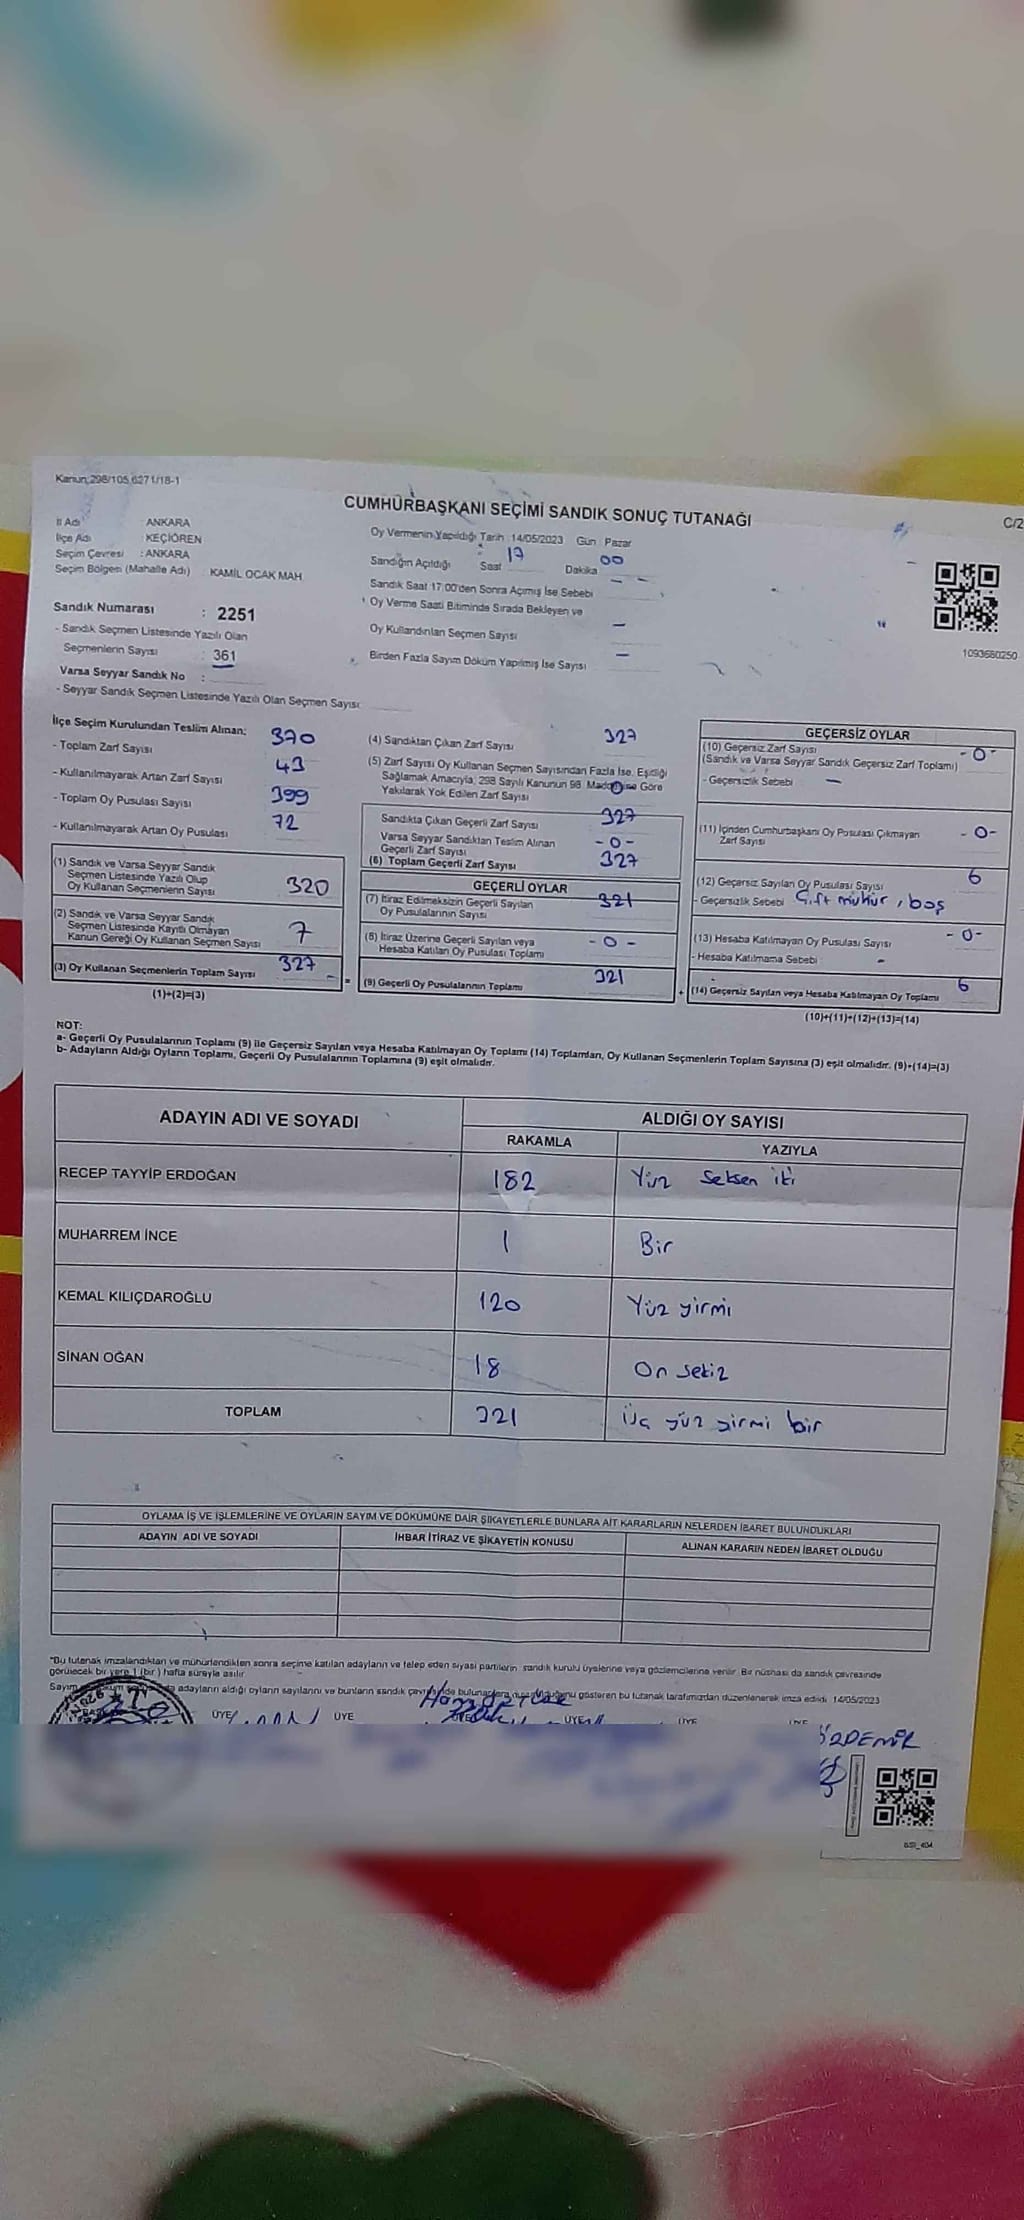 Kanun;298/105,6271/18-1
CUMHURBAŞKANI SEÇİMİ SANDIK SONUÇ TUTANAĞI
C/2
İl Adı : ANKARA
İlçe Adı : KEÇİÖREN
Seçim Çevresi : ANKARA
Seçim Bölgesi (Mahalle Adı) : KAMİL OCAK MAH.
Oy Vermenin Yapıldığı Tarih : 14/05/2023 Gün : Pazar
Sandığın Açıldığı Saat 17 Dakika 00
Sandık Saat 17:00'den Sonra Açılmış İse Sebebi —
Oy Verme Saati Bitiminde Sırada Bekleyen ve
Oy Kullandırılan Seçmen Sayısı —
Birden Fazla Sayım Döküm Yapılmış İse Sayısı —
1093680250
Sandık Numarası : 2251
- Sandık Seçmen Listesinde Yazılı Olan
Seçmenlerin Sayısı : 361
Varsa Seyyar Sandık No :
- Seyyar Sandık Seçmen Listesinde Yazılı Olan Seçmen Sayısı:
İlçe Seçim Kurulundan Teslim Alınan;
- Toplam Zarf Sayısı 370
- Kullanılmayarak Artan Zarf Sayısı 43
- Toplam Oy Pusulası Sayısı 399
- Kullanılmayarak Artan Oy Pusulası 72
(1) Sandık ve Varsa Seyyar Sandık
Seçmen Listesinde Yazılı Olup
Oy Kullanan Seçmenlerin Sayısı 320
(2) Sandık ve Varsa Seyyar Sandık
Seçmen Listesinde Kayıtlı Olmayan
Kanun Gereği Oy Kullanan Seçmen Sayısı 7
(3) Oy Kullanan Seçmenlerin Toplam Sayısı 327
(1)+(2)=(3)
(4) Sandıktan Çıkan Zarf Sayısı 327
(5) Zarf Sayısı Oy Kullanan Seçmen Sayısından Fazla İse, Eşitliği
Sağlamak Amacıyla; 298 Sayılı Kanunun 98. Maddesine Göre
Yakılarak Yok Edilen Zarf Sayısı 0
Sandıkta Çıkan Geçerli Zarf Sayısı 327
Varsa Seyyar Sandıktan Teslim Alınan
Geçerli Zarf Sayısı -0-
(6) Toplam Geçerli Zarf Sayısı 327
GEÇERLİ OYLAR
(7) İtiraz Edilmeksizin Geçerli Sayılan
Oy Pusulalarının Sayısı 321
(8) İtiraz Üzerine Geçerli Sayılan veya
Hesaba Katılan Oy Pusulası Toplamı -0-
(9) Geçerli Oy Pusulalarının Toplamı 321
GEÇERSİZ OYLAR
(10) Geçersiz Zarf Sayısı -0-
(Sandık ve Varsa Seyyar Sandık Geçersiz Zarf Toplamı)
- Geçersizlik Sebebi —
(11) İçinden Cumhurbaşkanı Oy Pusulası Çıkmayan
Zarf Sayısı -0-
(12) Geçersiz Sayılan Oy Pusulası Sayısı 6
- Geçersizlik Sebebi Çift mühür, boş
(13) Hesaba Katılmayan Oy Pusulası Sayısı -0-
- Hesaba Katılmama Sebebi -
(14) Geçersiz Sayılan veya Hesaba Katılmayan Oy Toplamı 6
(10)+(11)+(12)+(13)=(14)
NOT:
a- Geçerli Oy Pusulalarının Toplamı (9) ile Geçersiz Sayılan veya Hesaba Katılmayan Oy Toplamı (14) Toplamları, Oy Kullanan Seçmenlerin Toplam Sayısına (3) eşit olmalıdır. (9)+(14)=(3)
b- Adayların Aldığı Oyların Toplamı, Geçerli Oy Pusulalarının Toplamına (9) eşit olmalıdır.
ADAYIN ADI VE SOYADI ALDIĞI OY SAYISI
RAKAMLA YAZIYLA
RECEP TAYYİP ERDOĞAN 182 Yüz seksen iki
MUHARREM İNCE 1 Bir
KEMAL KILIÇDAROĞLU 120 Yüz yirmi
SİNAN OĞAN 18 On sekiz
TOPLAM 321 Üç yüz yirmi bir
OYLAMA İŞ VE İŞLEMLERİNE VE OYLARIN SAYIM VE DÖKÜMÜNE DAİR ŞİKAYETLERLE BUNLARA AİT KARARLARIN NELERDEN İBARET BULUNDUKLARI
ADAYIN ADI VE SOYADI İHBAR İTİRAZ VE ŞİKAYETİN KONUSU ALINAN KARARIN NEDEN İBARET OLDUĞU
"Bu tutanak imzalandıktan ve mühürlendikten sonra seçime katılan adayların ve talep eden siyasi partilerin sandık kurulu üyelerine veya gözlemcilerine verilir. Bir nüshası da sandık çevresinde
görülecek bir yere 1 (bir) hafta süreyle asılır.
Sayım adayların aldığı oyların sayılarını ve bunların sandık çevresinde bulunanlara gösteren bu tutanak tarafımızdan düzenlenerek imza edildi. 14/05/2023
ÜYE ÜYE ÜYE ÜYE ÜYE
ÖZDEMİR